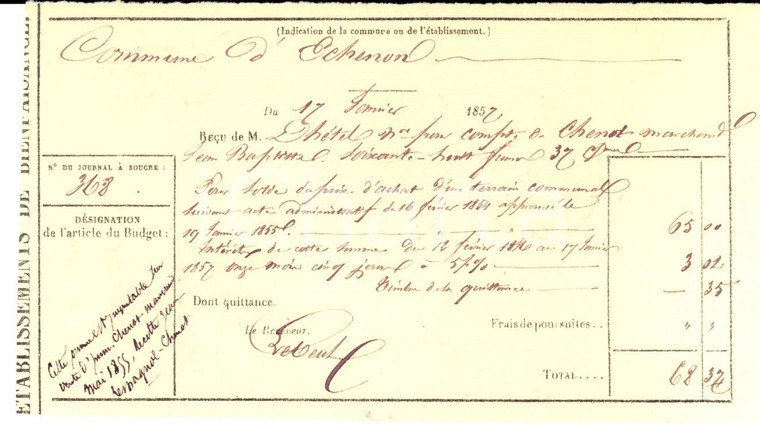 (Indication de la commune ou de l'établissement.)
Commune d'Echenon
Du 17 Janvier 1857
Reçu de M. Lhétel Nre pour compte de Chenot marchand
Jean Baptiste Soixante huit francs 37 c
Pour Solde du prix d'achat d'un terrain communal
suivant acte administratif du 16 février 1854 approuvé le
19 Janvier 1855 65 00
Intérêt de cette somme du 12 février 1856 au 17 Janvier
1857 onze mois cinq jours à 5 p% 3 02
Timbre de la quittance — 35
Dont quittance.
Le Receveur.
Frais de poursuites.. " "
TOTAL.... 68 37
ÉTABLISSEMENTS DE BIENFAISANCE
N° DU JOURNAL À SOUCHE :
368.
DÉSIGNATION
de l'article du Budget:
Cette somme est imputable sur
vente d'imm. Chenot
mai 1855, recette Jean
Lespagnol-Chenot